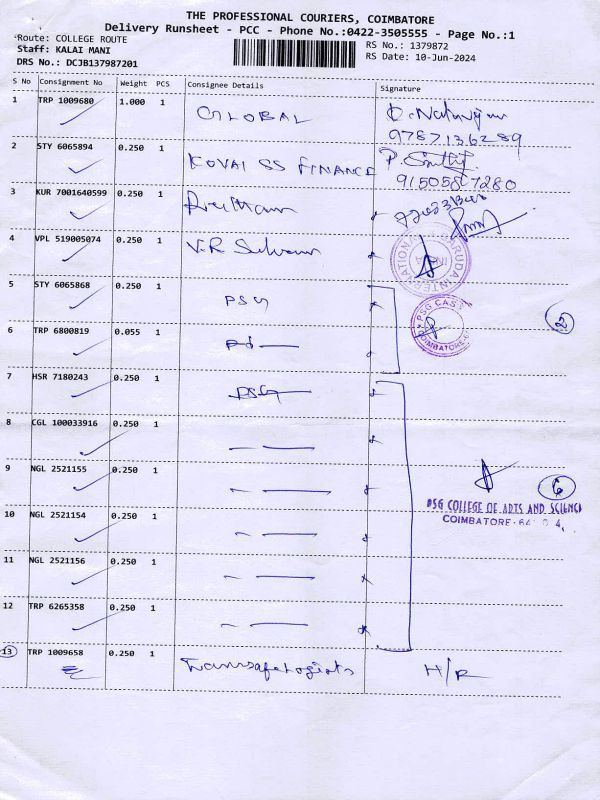 THE PROFESSIONAL COURIERS, COIMBATORE
Delivery Runsheet - PCC - Phone No.:0422-3505555 - Page No.:1
Route: COLLEGE ROUTE
Staff: KALAI MANI
DRS No.: DCJB137987201
RS No.: 1379872
RS Date: 10-Jun-2024
S No Consignment No Weight PCS Consignee Details Signature
1 TRP 1009680 1.000 1 GLOBAL
9787136289
2 STY 6065894 0.250 1 KOVAI SS FINANCE
3 KUR 7001640599 0.250 1
4 VPL 519005074 0.250 1 V.R
INTERNATIONAL
5 STY 6065868 0.250 1 PSG
PSG CAS
COIMBATORE
2
6 TRP 6800819 0.055 1
7 HSR 7180243 0.250 1 PSG
8 CGL 100033916 0.250 1
9 NGL 2521155 0.250 1
6
PSG COLLEGE OF ARTS AND SCIENCE
COIMBATORE
10 NGL 2521154 0.250 1
11 NGL 2521156 0.250 1
12 TRP 6265358 0.250 1
13 TRP 1009658 0.250 1 H/R